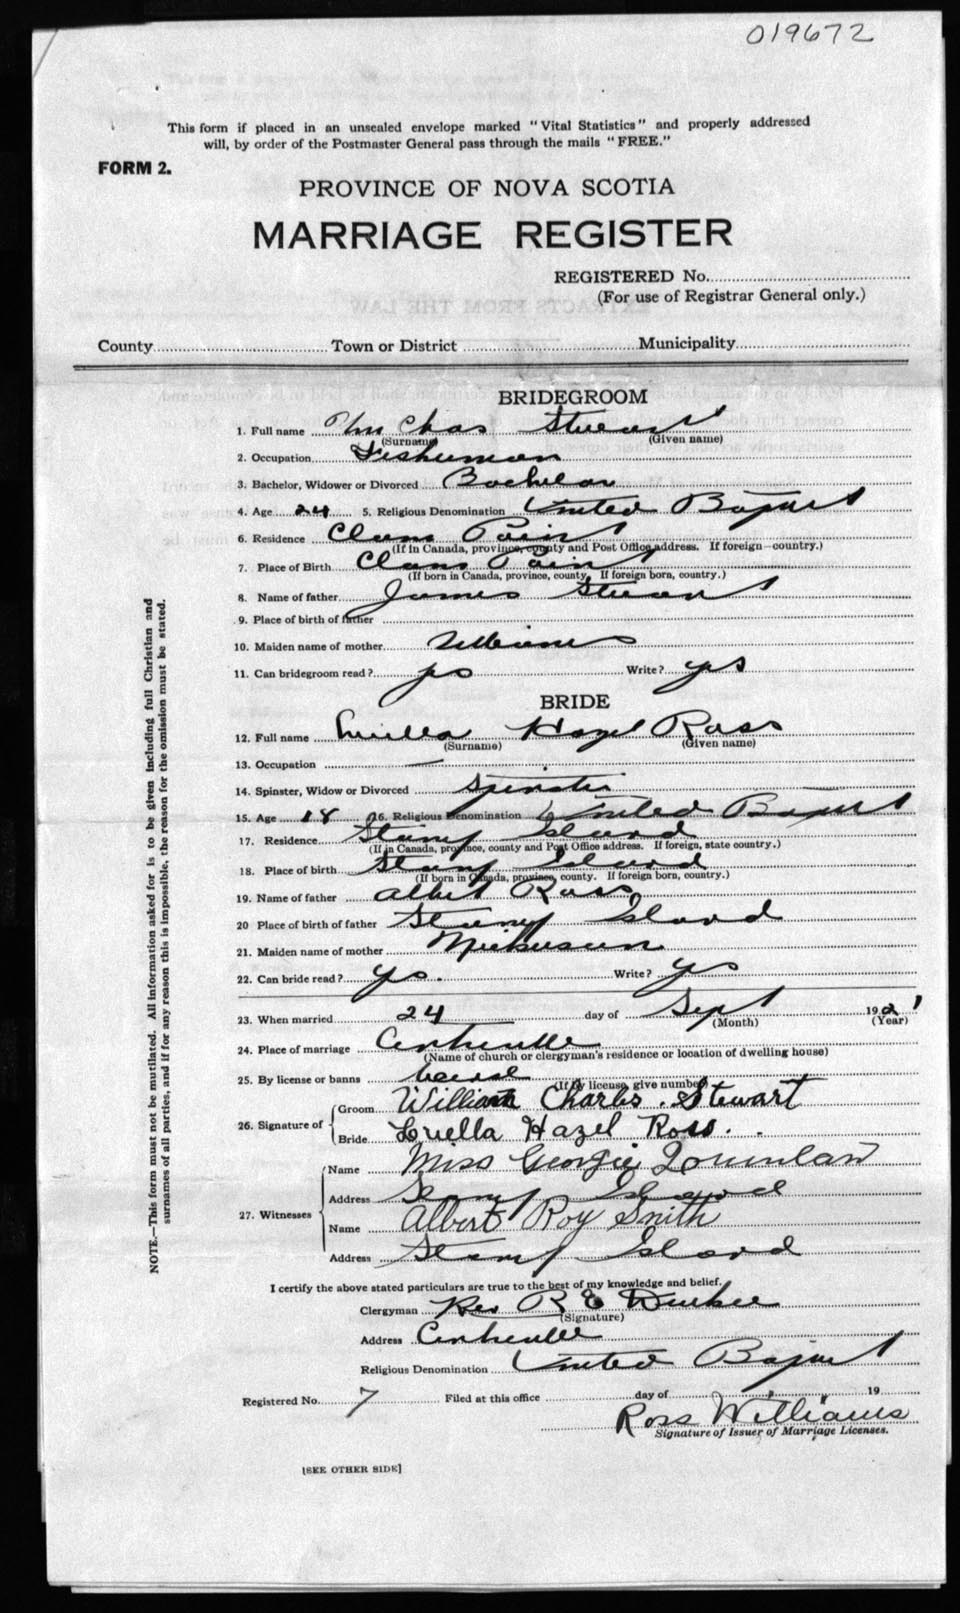 019672
This form if placed in an unsealed envelope marked "Vital Statistics" and properly addressed
will, by order of the Postmaster General pass through the mails "FREE."
FORM 2.
PROVINCE OF NOVA SCOTIA
MARRIAGE REGISTER
REGISTERED No.
(For use of Registrar General only.)
County Town or District Municipality
BRIDEGROOM
1. Full name Wm Chas Stewart
(Surname) (Given name)
2. Occupation Fisherman
3. Bachelor, Widower or Divorced Bachelor
4. Age 24 5. Religious Denomination United Baptist
6. Residence Clams Point
(If in Canada, province, county and Post Office address. If foreign—country.)
7. Place of Birth Clams Point
(If born in Canada, province, county. If foreign born, country.)
8. Name of father James Stewart
9. Place of birth of father
10. Maiden name of mother
11. Can bridegroom read? yes Write? yes
BRIDE
12. Full name Luella Hazel Ross
(Surname) (Given name)
13. Occupation —
14. Spinster, Widow or Divorced Spinster
15. Age 18 16. Religious Denomination United Baptist
17. Residence Stump Island
(If in Canada, province, county and Post Office address. If foreign, state country.)
18. Place of birth Stump Island
(If born in Canada, province, county. If foreign born, country.)
19. Name of father Albert Ross
20 Place of birth of father Stump Island
21. Maiden name of mother Nickerson
22. Can bride read? yes. Write? yes
23. When married 24 day of Sept 1921
(Month) (Year)
24. Place of marriage Centreville
(Name of church or clergyman's residence or location of dwelling house)
25. By license or banns
(If by license, give number)
26. Signature of Groom William Charles Stewart
Bride Luella Hazel Ross.
27. Witnesses Name Miss Georgie
Address Stump Island
Name Albert Roy Smith
Address Stump Island
I certify the above stated particulars are true to the best of my knowledge and belief.
Clergyman Rev R E
(Signature)
Address Centreville
Religious Denomination United Baptist
Registered No. 7 Filed at this office day of 19
Ross Williams
Signature of Issuer of Marriage Licenses.
[SEE OTHER SIDE]
NOTE.—This form must not be mutilated. All information asked for is to be given including full Christian and
surnames of all parties, and if for any reason this is impossible, the reason for the omission must be stated.